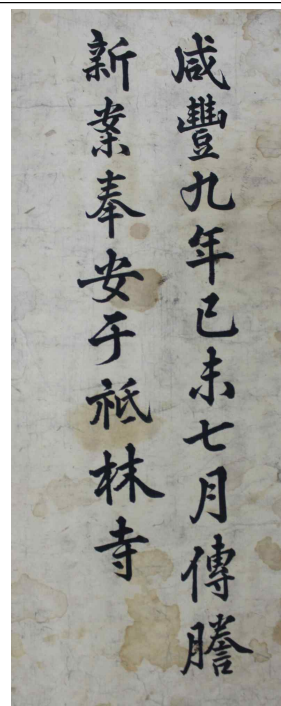 咸豐九年己未七月傳謄
新案奉安于祇林寺